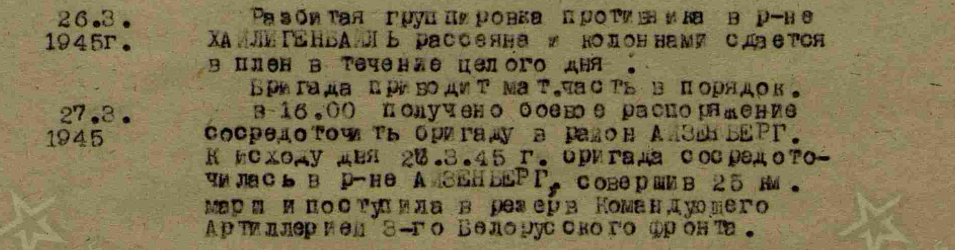 26.3. Разбитая группировка противника в р-не
1945г. ХАЙЛИГЕНБАЙЛЬ рассеяна и колоннами сдается
в плен в течение целого дня .
Бригада приводит мат.часть в порядок.
27.3. в 16.00 получено боевое распоряжение
1945 сосредоточить бригаду в район АЙЗЕНБЕРГ.
К исходу дня 28.3.45 г. бригада сосредото-
чилась в р-не АЙЗЕНБЕРГ, совершив 25 км.
марш и поступила в резерв Командующего
Артиллерией 3-го Белорусского фронта.